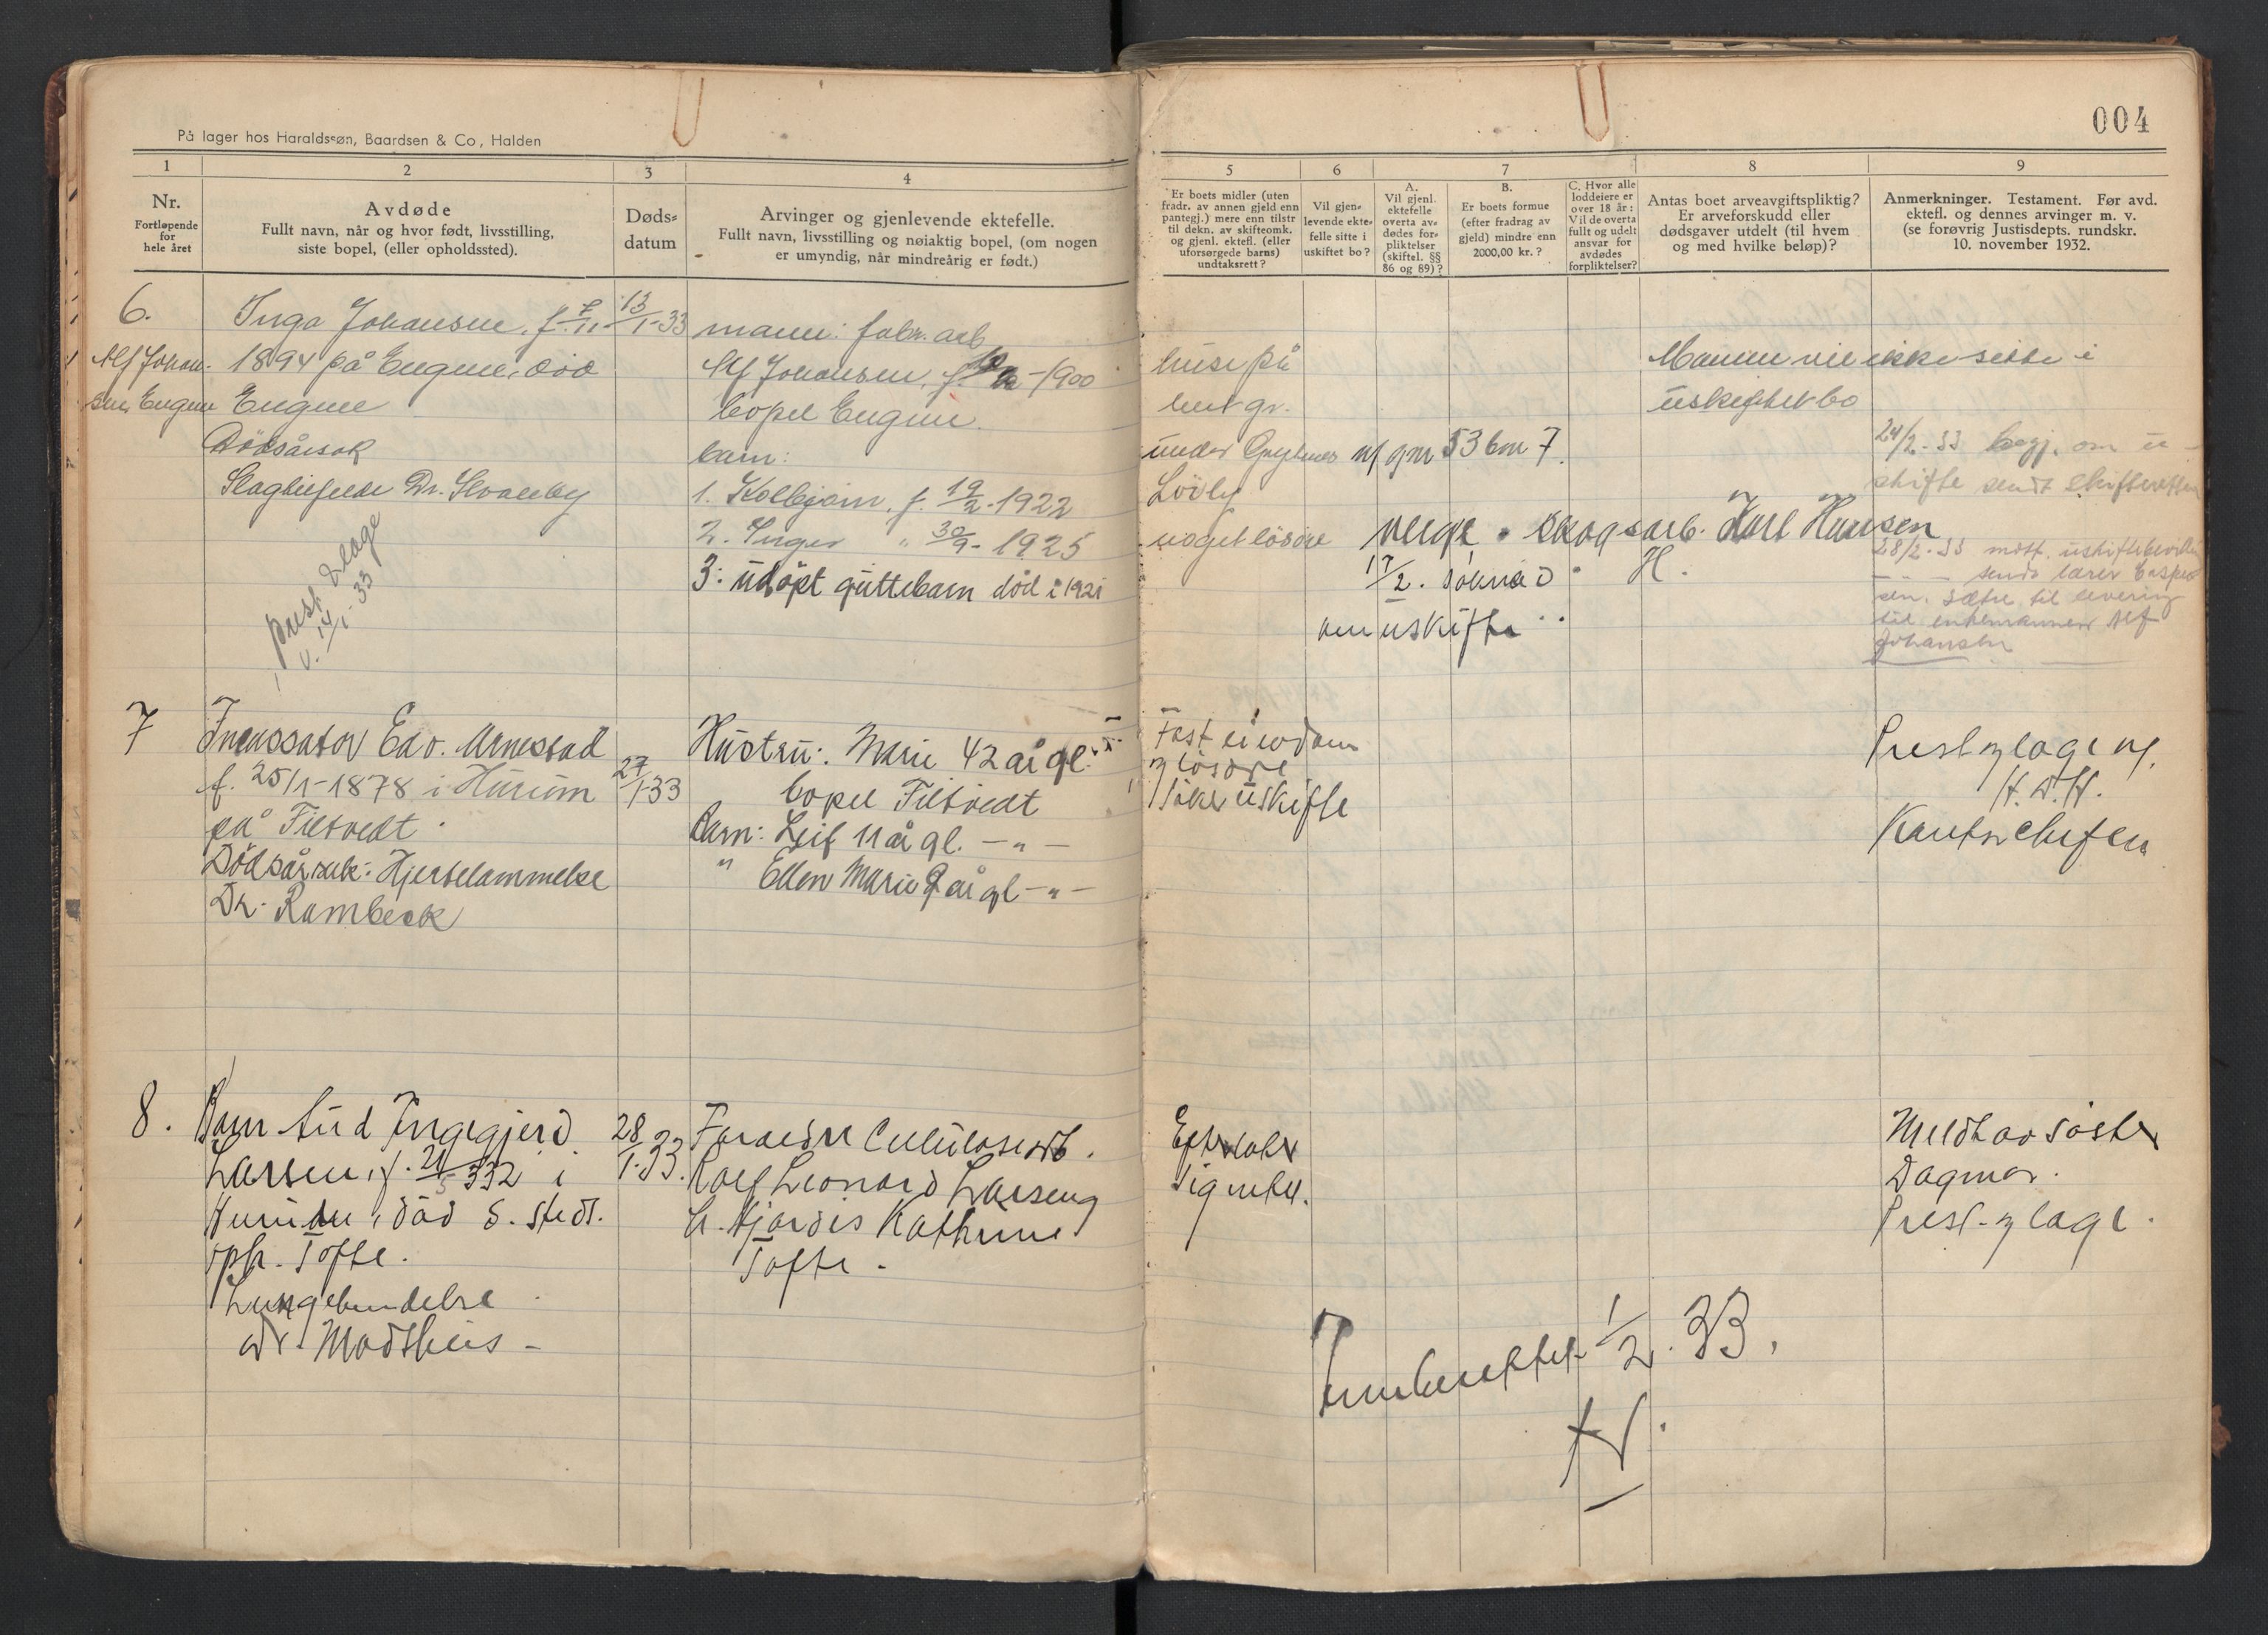 På lager hos Haraldssøn, Baardsen & Co, Halden
1
2
3
4
Nr.
Fortløpende
for
hele året
Avdøde
Fullt navn, når og hvor født, livsstilling,
siste bopel, (eller opholdssted).
Døds=
datum
Arvinger og gjenlevende ektefelle.
Fullt navn, livsstilling og nøiaktig bopel, (om nogen
er umyndig, når mindreårig er født.)
6.
Alf Johan-
sen, Engene
Inga Johansen, f. 7/11-
1894 på Engene, död
Engene
Dödsårsak
Slagtilfelde Dr. Svaleby
prest & lage
14/1 33
13/1-33
mann: fabr. arb
Alf Johansen, f. -1900
bopel Engene.
barn:
1. Kolbjørn, f. 19/2-1922
2. Inger " 30/9-1925
3: udöpt guttebarn död i 1921
7
Incassator Edv. Arnestad
f. 25/1-1878 i Hurum
på Filtvedt.
Dödsårsak: Hjertelammelse
Dr. Rambeck
27/1-33
Hustru: Marie 42 år gl.
bopel Filtvedt
Barn: Leif 11 år gl. - " -
" Ellen Marie 9 år gl - " -
8.
Barn Aud Ingegjerd
Larsen, f. 21/5 332 i
Hurum, död s. steds.
oph. Tofte.
Lungebendelse
dr. Madshus -
28/1-33.
Foreldre Cellulosearb.
Rolf Leonard Larsen og
h. Hjördis Kathrine
Tofte.
004
5
6
7
8
9
Er boets midler (uten
fradr. av annen gjeld enn
pantegj.) mere enn tilstr
til dekn. av skifteomk.
og gjenl. ektef. (eller
uforsørgede barns)
undtaksrett?
Vil gjen=
levende ekte=
felle sitte i
uskiftet bo?
A.
Vil gjenl.
ektefelle
overta av=
dødes for=
pliktelser
(skiftel. §§
86 og 89)?
B.
Er boets formue
(efter fradrag av
gjeld) mindre enn
2000,00 kr.?
C. Hvor alle
loddeiere er
over 18 år:
Vil de overta
fullt og udelt
ansvar for
avdødes
forpliktelser?
Antas boet arveavgiftspliktig?
Er arveforskudd eller
dødsgaver utdelt (til hvem
og med hvilke beløp)?
Anmerkninger. Testament. Før avd.
ektefl. og dennes arvinger m. v.
(se forøvrig Justisdepts. rundskr.
10. november 1932.
huse på
leiet gr.
under m/ gnr 53 bnr 7.
Lövly
noget lösöre
Mannen vil ikke sitte i
uskiftet bo
verge. skogsarb. Karl Hansen
17/2. söknad H.
om uskifte
24/2-33 begj. om u-
skifte sendt skifteretten
28/2-33 mott. uskiftebevilln
- - - sendt lærer
sen. Sætre, til levering
til enkemannen Alf
Johansen
Fast eiendom
og lösöre
söker uskifte
Prest og lage
H. A. H.
Efterlater
sig intet.
Meldt av söster
Dagmar.
Prest og lage.
Innberettet 1/2. 33.